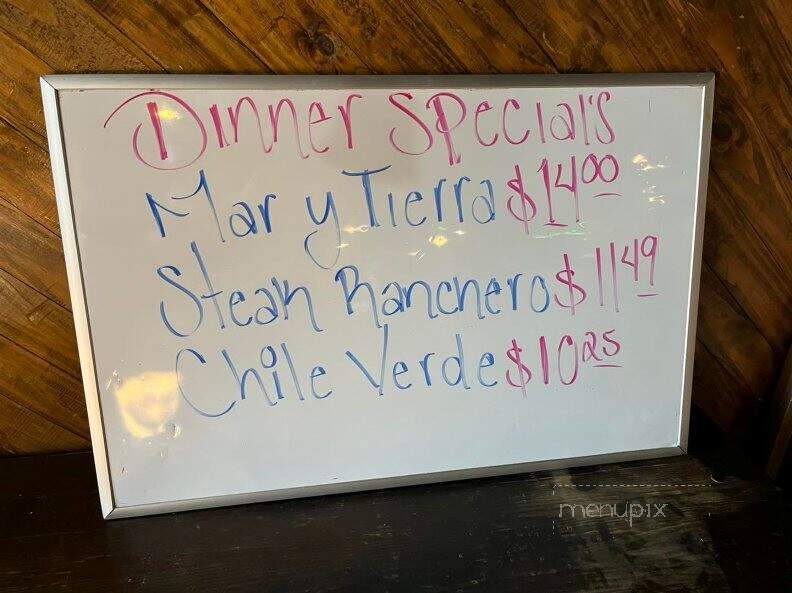 Dinner Special's
Mar y Tierra $14.00
Steak Ranchero $11.49
Chile Verde $10.25
menupix